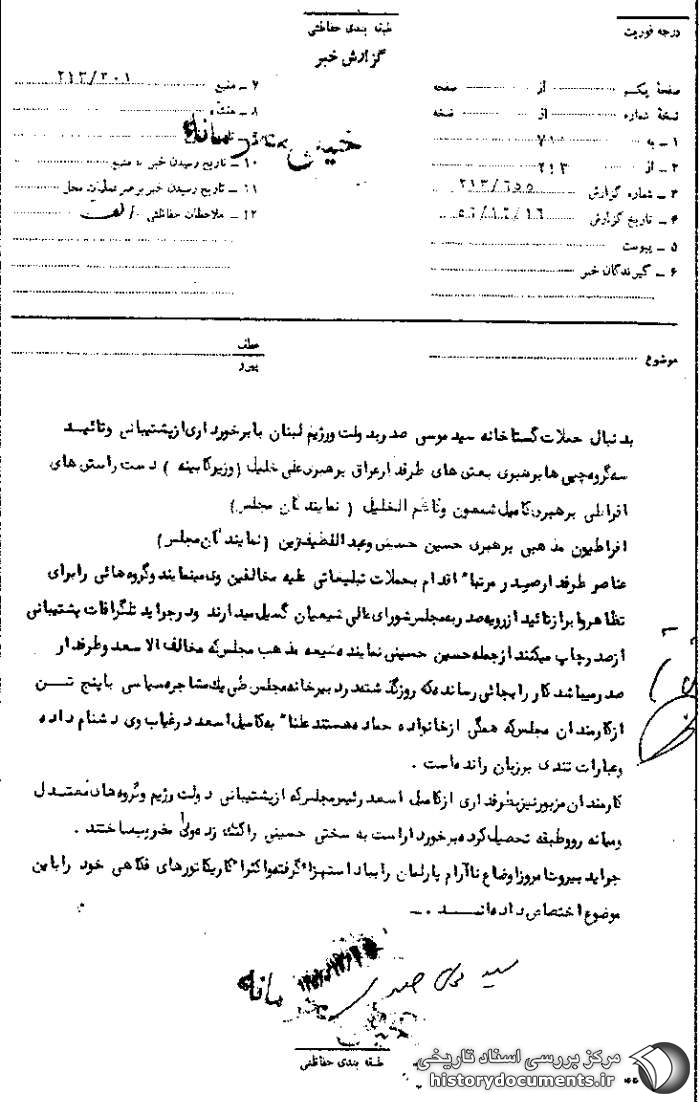 درجه فوریت
طبقه بندی حفاظتی
گزارش خبر
صفحهٔ یکم از صفحه
نسخهٔ شماره از نسخه
۱ ـ به
۲ ـ از ۲۱۳
۳ ـ شماره گزارش ۲۱۳/۶۵۵
۴ ـ تاریخ گزارش
۵ ـ پیوست
۶ ـ گیرندگان خبر
۷ ـ منبع ۲۱۳/۲۰۱
۸ ـ منشاء
۱۰ ـ تاریخ رسیدن خبر به منبع
۱۱ ـ تاریخ رسیدن خبر برهبر عملیات محل
۱۲ ـ ملاحظات حفاظتی
موضوع
عطف
پیرو
بدنبال حملات گستاخانه سید موسی صدر بدولت و رژیم لبنان با برخورداری از پشتیبانی و تائیـد
سه گروه چپی ها برهبری بعثی های طرفدار عراق برهبری علی خلیل (وزیر کابینه ) دست راستی های
افراطی برهبری کامیل شمعون و کاظم الخلیل ( نمایندگان مجلس)
افراطیون مذهبی برهبری حسین حسینی و عبداللطیف زین (نمایندگان مجلس)
عناصر طرفدار صدر مرتباً اقدام بحملات تبلیغاتی علیه مخالفین وی مینمایند و گروه هائی را برای
تظاهر و ابراز تائید از رویه صدر به مجلس شورای عالی شیعیان گسیل میدارند و در جراید تلگرافات پشتیبانی
از صدر چاپ میکنند از جمله حسین حسینی نماینده شیعه مذهب مجلس که مخالف الاسعد و طرفدار
صدر میباشد کار را بجائی رسانده که روز گذشته در دبیرخانه مجلس طی یک مشاجره سیاسی با پنج تـن
از کارمندان مجلس که همگی از خانواده حماده هستند علناً به کامیل اسعد در غیاب وی دشنام داده
و عبارات تندی بر زبان رانده است .
کارمندان مزبور نیز بطرفداری از کامیل اسعد رئیس مجلس که از پشتیبانی دولت رژیم و گروه های معتـدل
و میانه رو و طبقه تحصیل کرده برخوردار است به سختی حسینی را کتک زده و مضروب ساختند .
جراید بیروت امروز اوضاع ناآرام پارلمان را بباد استهزاء گرفته و اکثراً کاریکاتورهای فکاهی خود را باین
موضوع اختصاص داده انـد .ـ
سید موسی صدر
طبقه بندی حفاظتی
مرکز بررسی اسناد تاریخی
historydocuments.ir